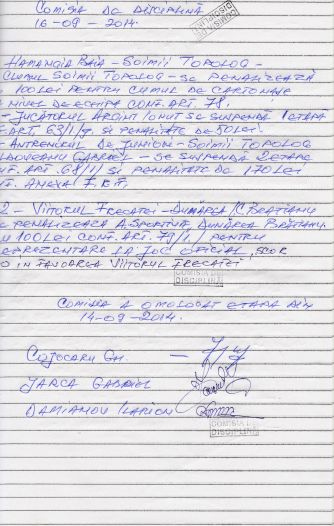 COMISIA DE DISCIPLINĂ
16-09-2014.
COMISIA DE
DISCIPLINĂ
HAMANGIA BAIA - ȘOIMII TOPOLOG -
CLUBUL ȘOIMII TOPOLOG - SE PENALIZEAZĂ
100 LEI PENTRU CUMUL DE CARTONAȘE
NIVEL DE ECHIPA CONF. ART. 78.
- JUCĂTORUL ARGINT IONUȚ SE SUSPENDĂ 1 ETAPA
ART. 63/1/ ȘI PENALITATE DE 50 LEI.
- ANTRENORUL DE JUNIORI - ȘOIMII TOPOLOG
GABRIEL - SE SUSPENDĂ 2 ETAPE
ART. 68/1/ ȘI PENALITATE DE 170 LEI
ANEXA F.R.F.
2 - VIITORUL FRECĂȚEI - DUNĂREA I.C. BRĂTIANU
PENALIZEAZĂ A.SPORTIVĂ DUNĂREA BRĂTIANU
100 LEI CONF. ART. 79/1/ PENTRU
LA JOC OFICIAL, SCOR
0 IN FAVOAREA VIITORUL FRECĂȚEI
COMISIA DE
DISCIPLINĂ
COMISIA A OMOLOGAT ETAPA DIN
14-09-2014.
COJOCARU GH. -
JARCA GABRIEL
DAMIANOV ILARION
COMISIA DE
DISCIPLINĂ